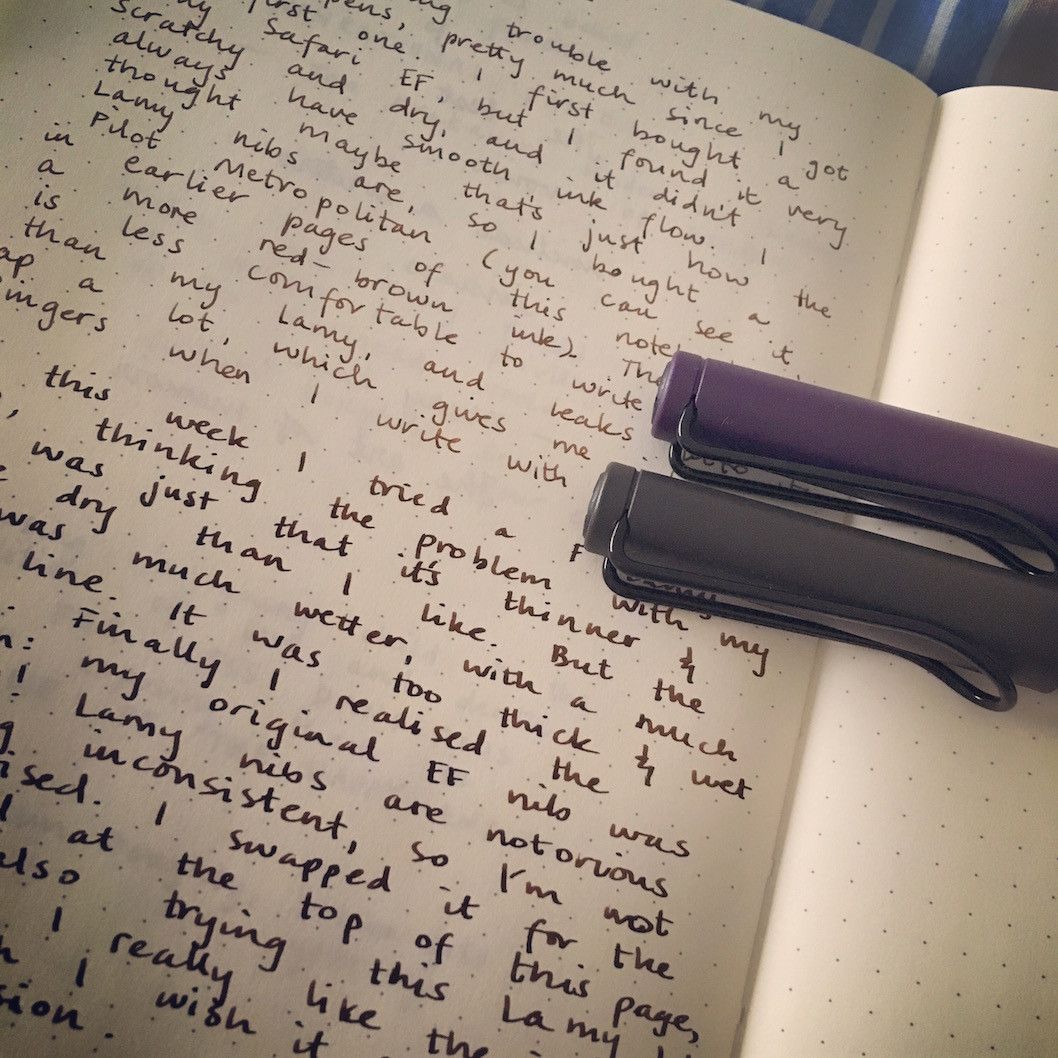 ng trouble with my
pens, pretty much since I got
my first one. I first bought a
Safari EF, but I found it very
scratchy and dry, and it didn't
always have smooth ink flow. I
thought maybe that's just how the
Lamy nibs are, so I bought a
Pilot Metropolitan (you can see it
in earlier pages of this note
a more red-brown ink). The
is less comfortable to write
than my Lamy, and leaks
ap a lot, which gives me
ingers when I write with
this week I tried a F Lamy
thinking the problem with my
was just that it's thinner &
dry than I like. But the
was much wetter, with a much
line. It was too thick & wet
Finally I realised the
n: my original EF nib was
! Lamy nibs are notorious
g inconsistent, so I'm not
ised. I swapped it for the
d at the top of this page,
also trying this Lamy
I really like the
h I wish it
sion.